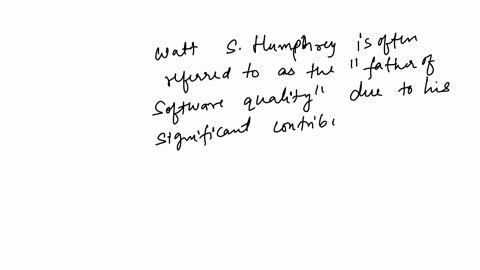 Watt S. Humphrey is often
referred to as the "father of
Software quality" due to his
significant contrib,